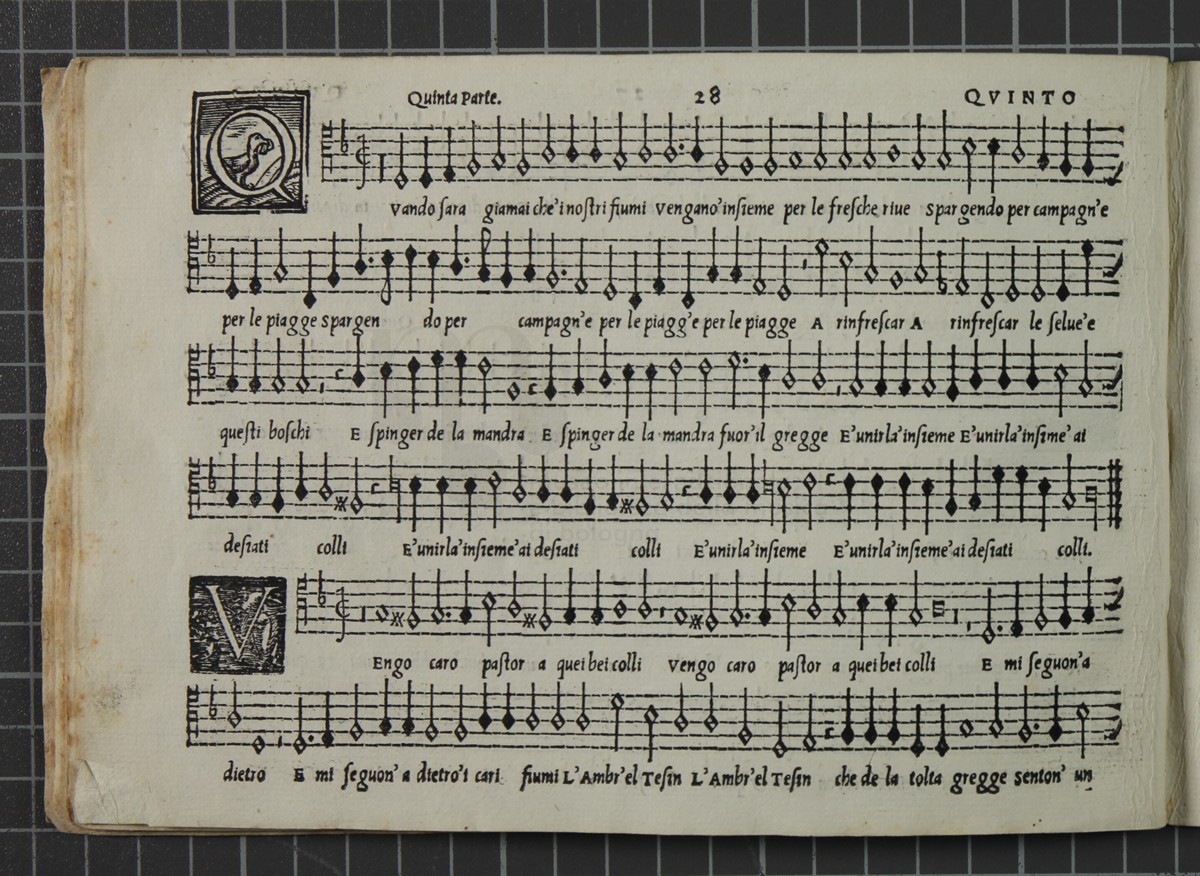 Quinta Parte. 28 QVINTO
QVando sara giamai che'i nostri fiumi Vengano'insieme per le fresche riue Spargendo per campagn'e
per le piagge spargen do per campagn'e per le piagg'e per le piagge A rinfrescar A rinfrescar le selue'e
questi boschi E spinger de la mandra E spinger de la mandra fuor'il gregge E'unirla'insieme E'unirla'insime'ai
desiati colli E'unirla'insieme'ai desiati colli E'unirla'insieme E'unirla'insieme'ai desiati colli.
VEngo caro pastor a quei bei colli Vengo caro pastor a quei bei colli E mi seguon'a
dietro E mi seguon'a dietro'i cari fiumi L'Ambr'el Tesin L'Ambr'el Tesin che de la tolta gregge senton' un